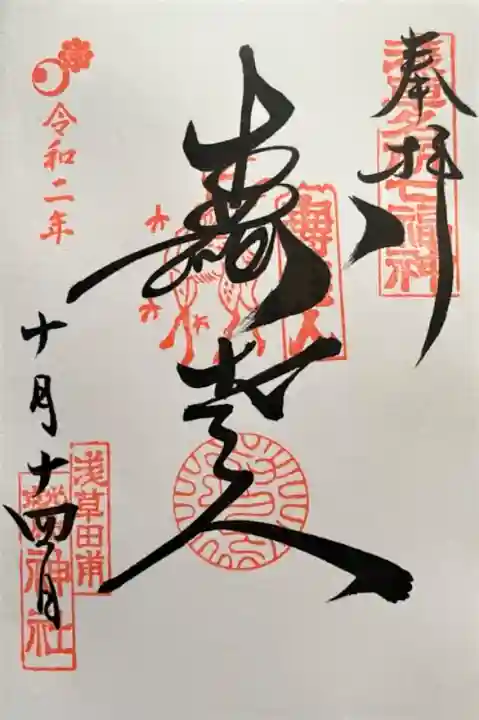 奉拝
浅草名所七福神
寿老人
寿老人
令和二年
十月十四日
浅草田甫
鷲神社